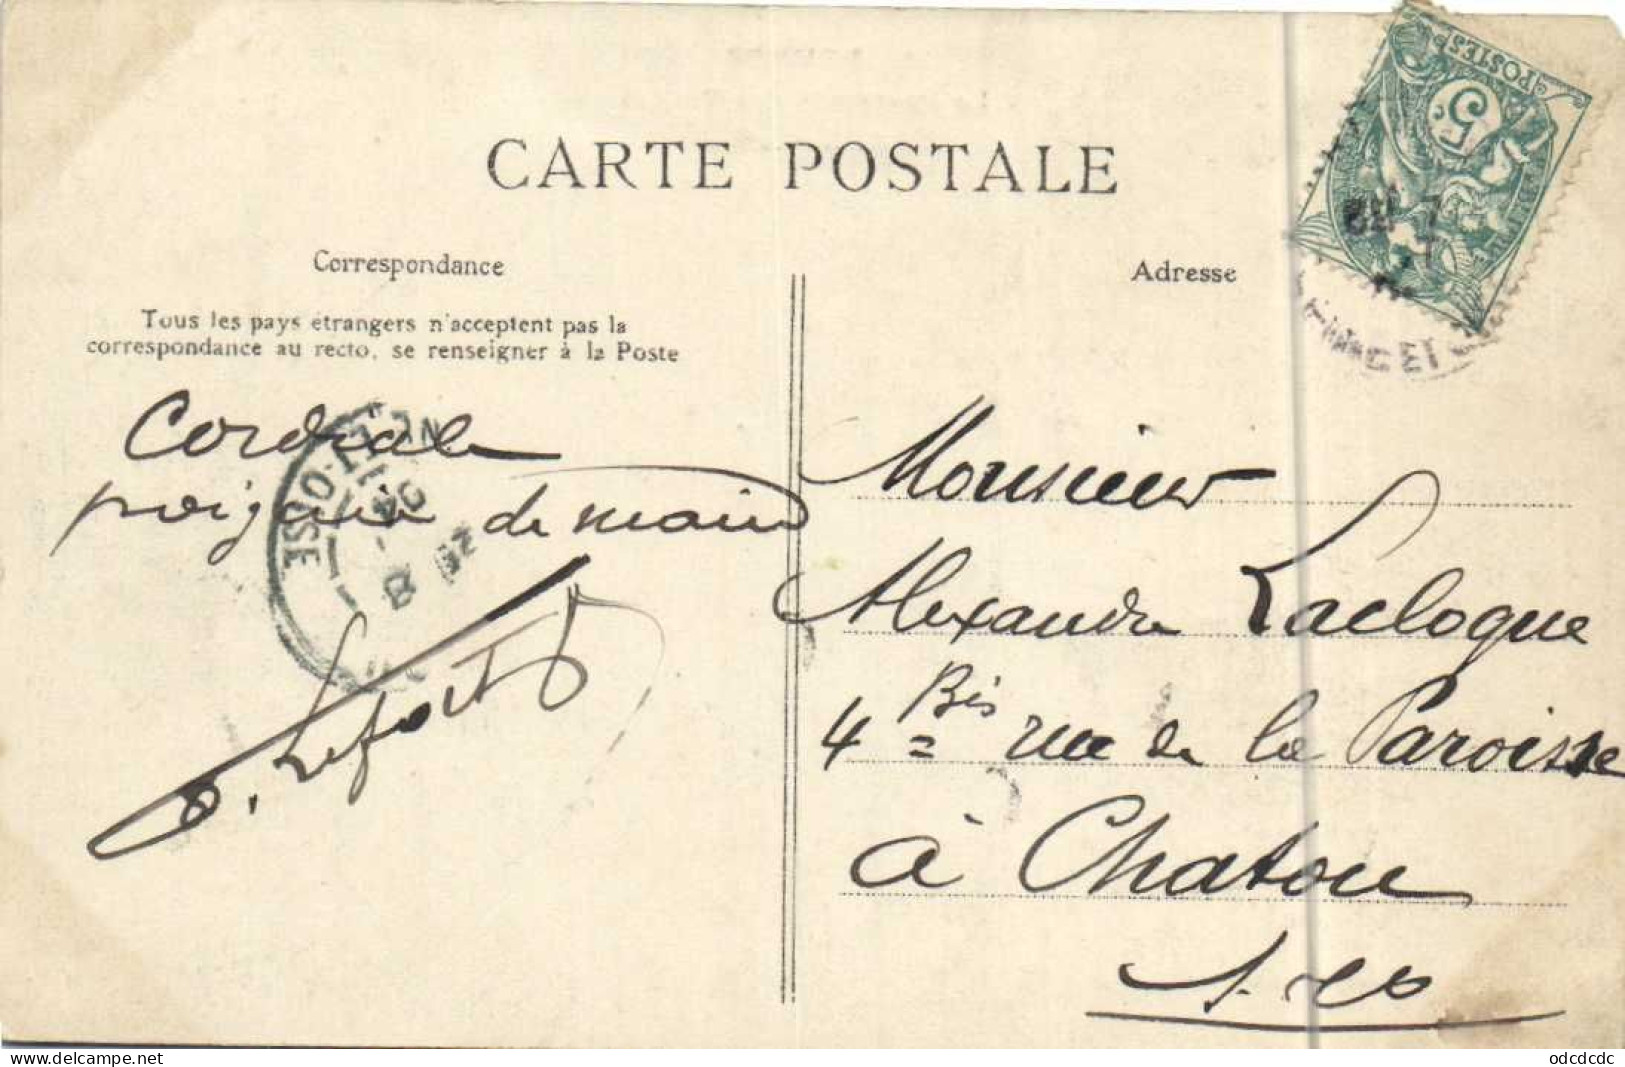 CARTE POSTALE
Correspondance
Adresse
Tous les pays étrangers n'acceptent pas la
correspondance au recto, se renseigner à la Poste
POSTES
5
ET-OISE
Cordiale
poignée de main
Lefort
Monsieur
Alexandre Laclogue
4 Bis rue de la Paroisse
à Chatou
S. &O
odcdcdc